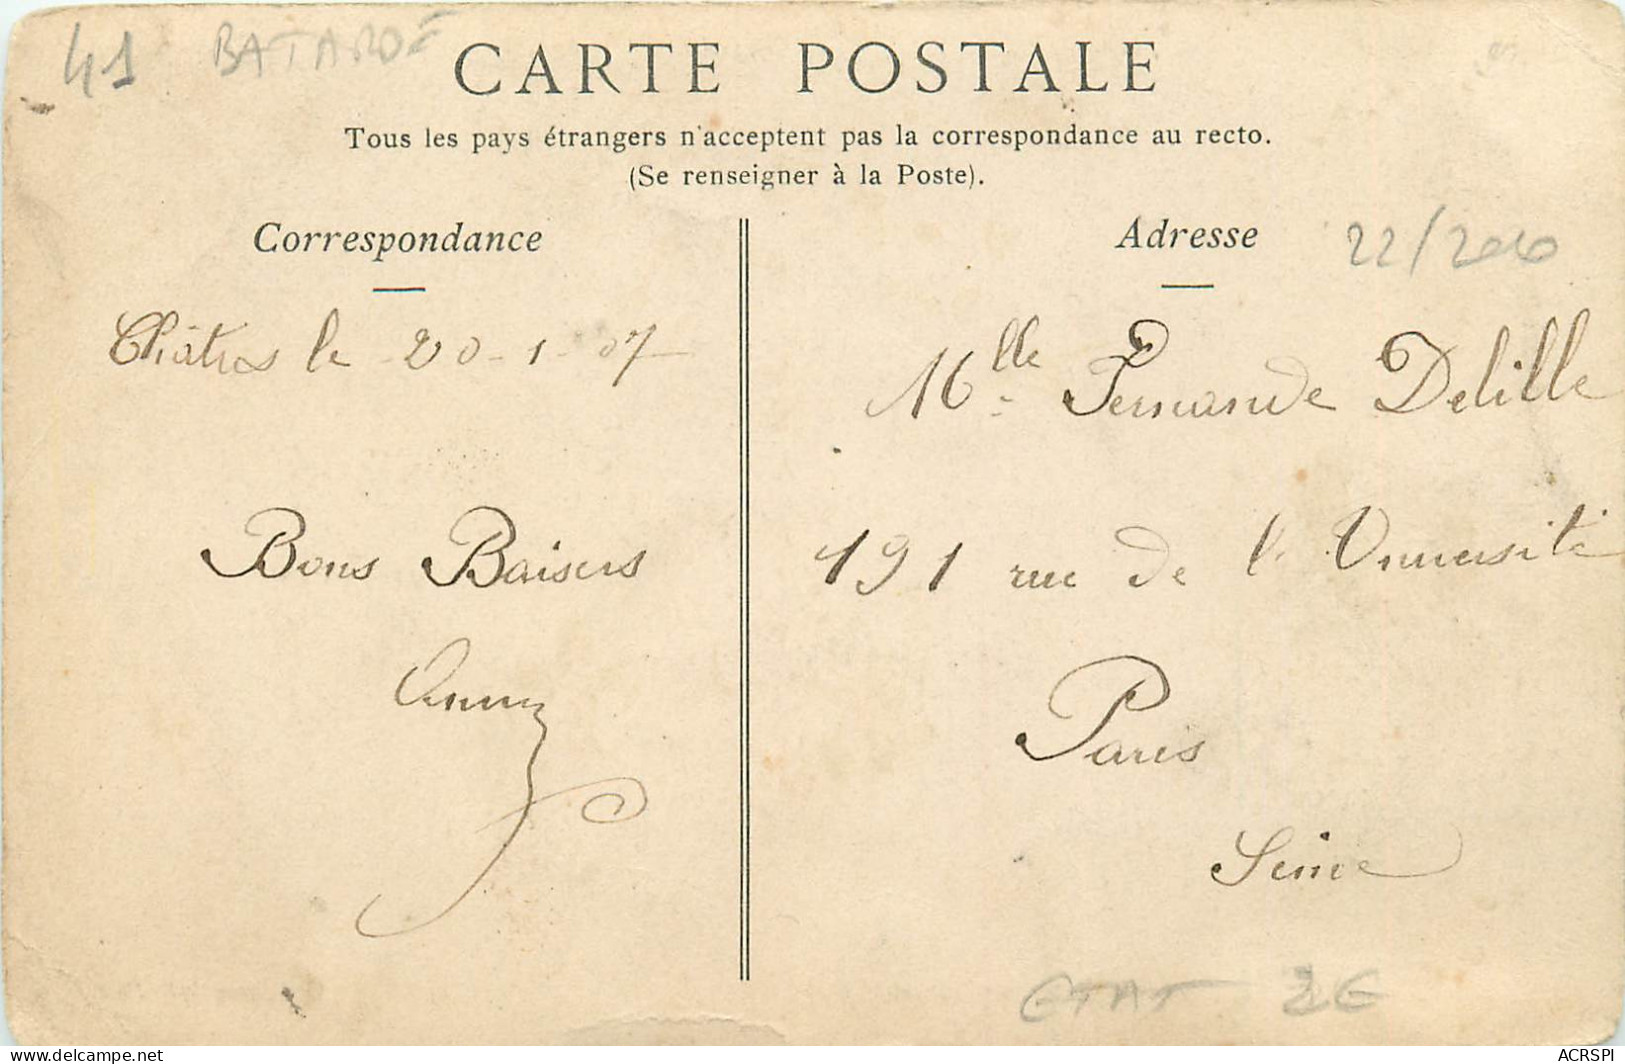 41 BATARDÉ
CARTE POSTALE
Tous les pays étrangers n'acceptent pas la correspondance au recto.
(Se renseigner à la Poste).
Correspondance
Châtres le 20-1-07
Bons Baisers
Adresse
22/200
Mlle Fernande Delille
191 rue de l'Université
Paris
Seine
ETAT 2€
ACRSPI